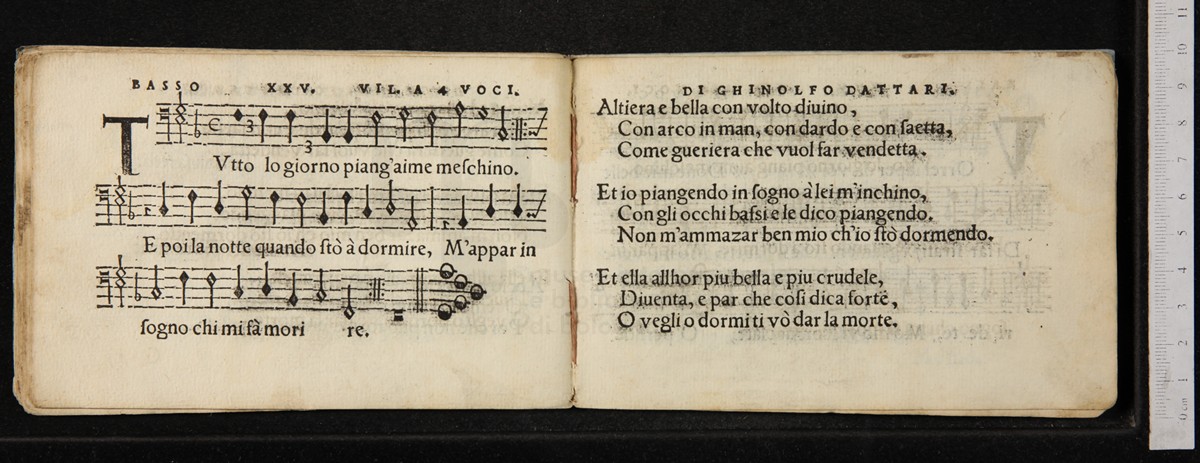 BASSO XXV. VIL. A 4 VOCI.
TVtto lo giorno piang'aime meſchino.
E poi la notte quando ſtò à dormire, M'appar in
ſogno chi mi fà mori re.
DI GHINOLFO DATTARI.
Altiera e bella con volto diuino,
Con arco in man, con dardo e con ſaetta,
Come gueriera che vuol far vendetta.
Et io piangendo in ſogno à lei m'inchino,
Con gli occhi baſsi e le dico piangendo.
Non m'ammazar ben mio ch'io ſtò dormendo.
Et ella allhor piu bella e piu crudele,
Diuenta, e par che coſi dica forte,
O vegli o dormi ti vò dar la morte.
0 cm 1 2 3 4 5 6 7 8 9 10 11